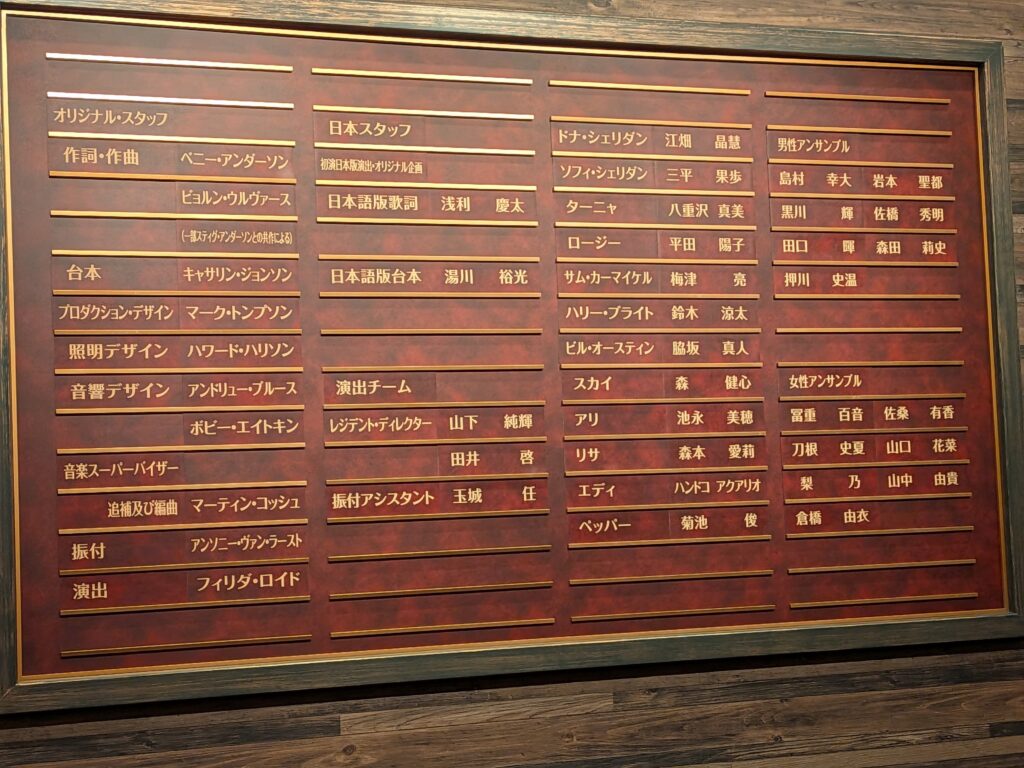 オリジナル・スタッフ
作詞・作曲 ベニー・アンダーソン
ビョルン・ウルヴァース
(一部スティグ・アンダーソンとの共作による)
台本 キャサリン・ジョンソン
プロダクション・デザイン マーク・トンプソン
照明デザイン ハワード・ハリソン
音響デザイン アンドリュー・ブルース
ボビー・エイトキン
音楽スーパーバイザー
追補及び編曲 マーティン・コッシュ
振付 アンソニー・ヴァン・ラースト
演出 フィリダ・ロイド
日本スタッフ
初演日本版演出・オリジナル企画
日本語版歌詞 浅利 慶太
日本語版台本 湯川 裕光
演出チーム
レジデント・ディレクター 山下 純輝
田井 啓
振付アシスタント 玉城 任
ドナ・シェリダン 江畑 晶慧
ソフィ・シェリダン 三平 果歩
ターニャ 八重沢 真美
ロージー 平田 陽子
サム・カーマイケル 梅津 亮
ハリー・ブライト 鈴木 涼太
ビル・オースティン 脇坂 真人
スカイ 森 健心
アリ 池永 美穂
リサ 森本 愛莉
エディ ハンドコ アクアリオ
ペッパー 菊池 俊
男性アンサンブル
島村 幸大 岩本 聖都
黒川 輝 佐橋 秀明
田口 暉 森田 莉史
押川 史温
女性アンサンブル
冨重 百音 佐桑 有香
刀根 史夏 山口 花菜
梨 乃 山中 由貴
倉橋 由衣